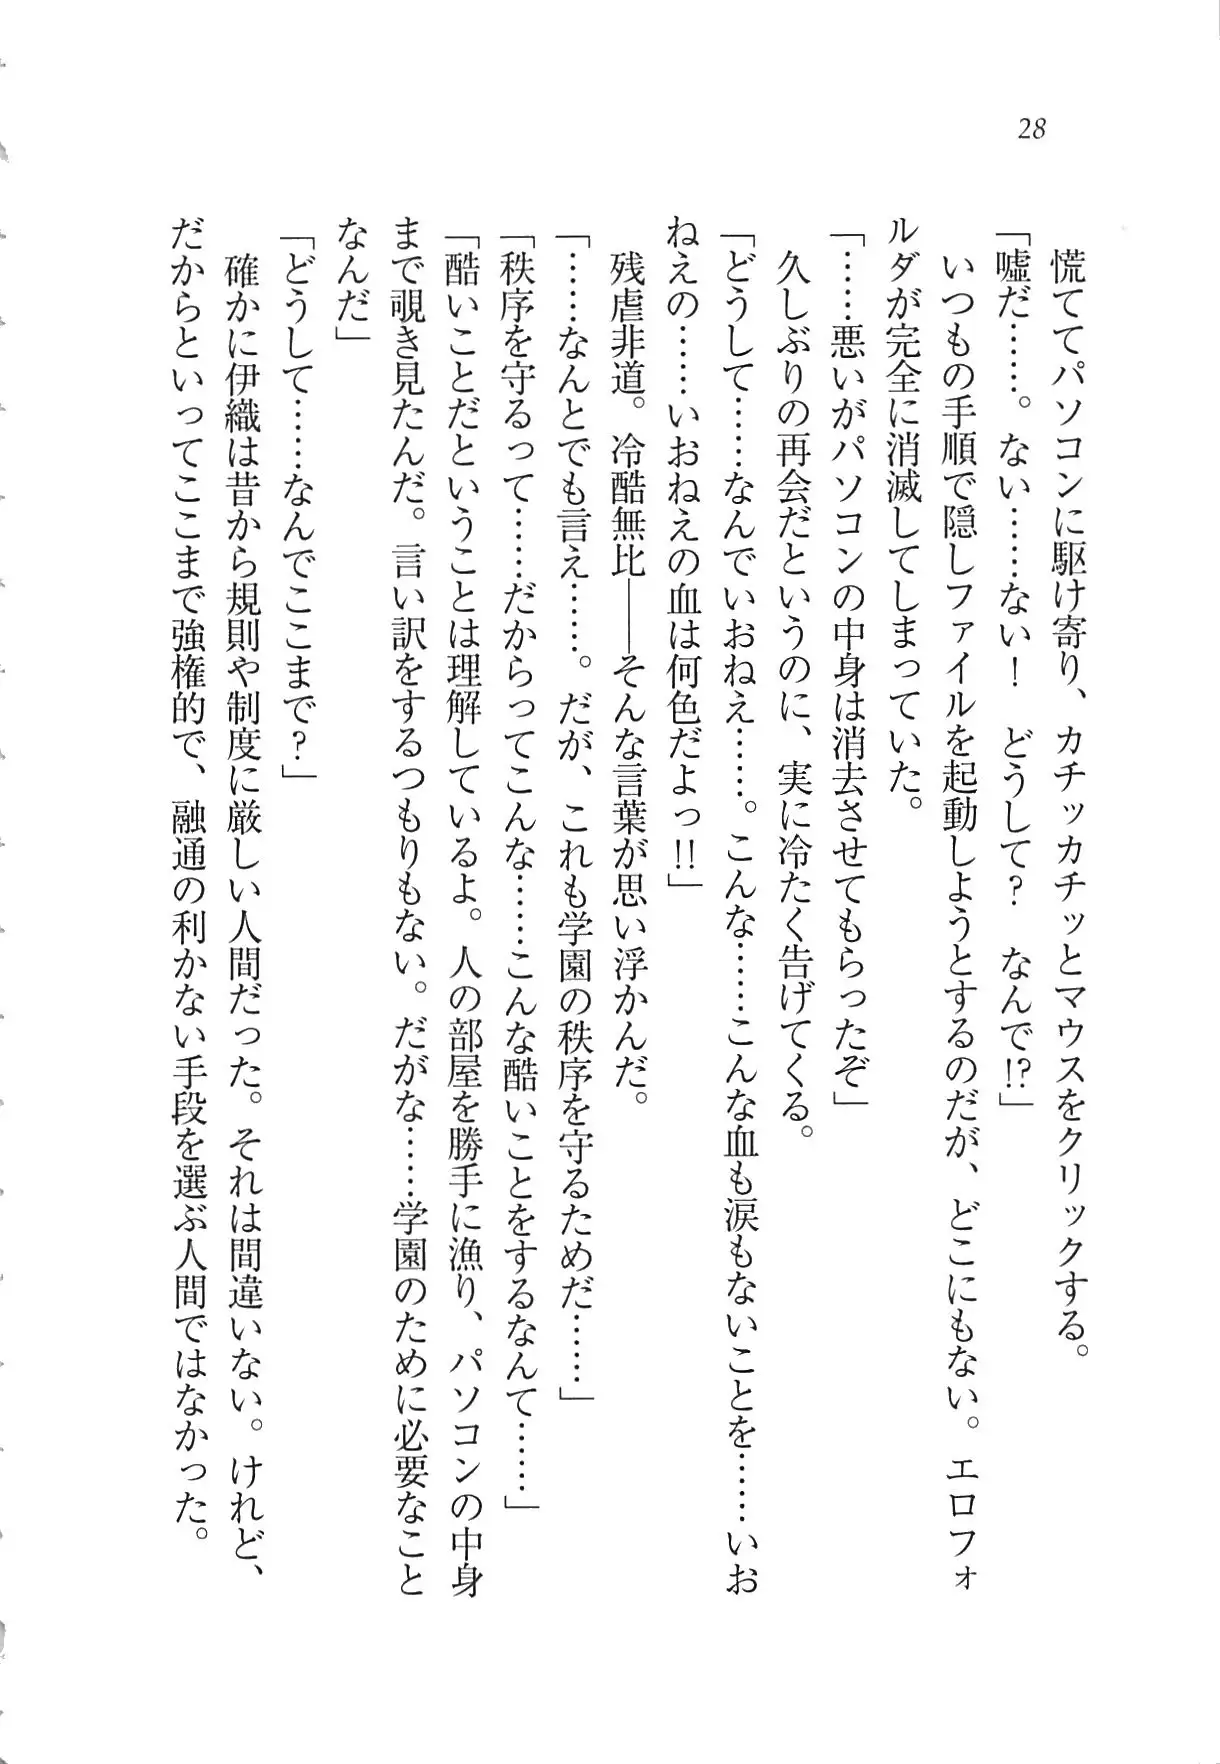 28
　慌ててパソコンに駆け寄り、カチッカチッとマウスをクリックする。
「嘘だ……。ない……ない！　どうして？　なんで!?」
　いつもの手順で隠しファイルを起動しようとするのだが、どこにもない。エロフォ
ルダが完全に消滅してしまっていた。
「……悪いがパソコンの中身は消去させてもらったぞ」
　久しぶりの再会だというのに、実に冷たく告げてくる。
「どうして……なんでいおねえ……。こんな……こんな血も涙もないことを……いお
ねえの……いおねえの血は何色だよっ!!」
　残虐非道。冷酷無比――そんな言葉が思い浮かんだ。
「……なんとでも言え……。だが、これも学園の秩序を守るためだ……」
「秩序を守るって……だからってこんな……こんな酷いことをするなんて……」
「酷いことだということは理解しているよ。人の部屋を勝手に漁り、パソコンの中身
まで覗き見たんだ。言い訳をするつもりもない。だがな……学園のために必要なこと
なんだ」
「どうして……なんでここまで？」
　確かに伊織は昔から規則や制度に厳しい人間だった。それは間違いない。けれど、
だからといってここまで強権的で、融通の利かない手段を選ぶ人間ではなかった。